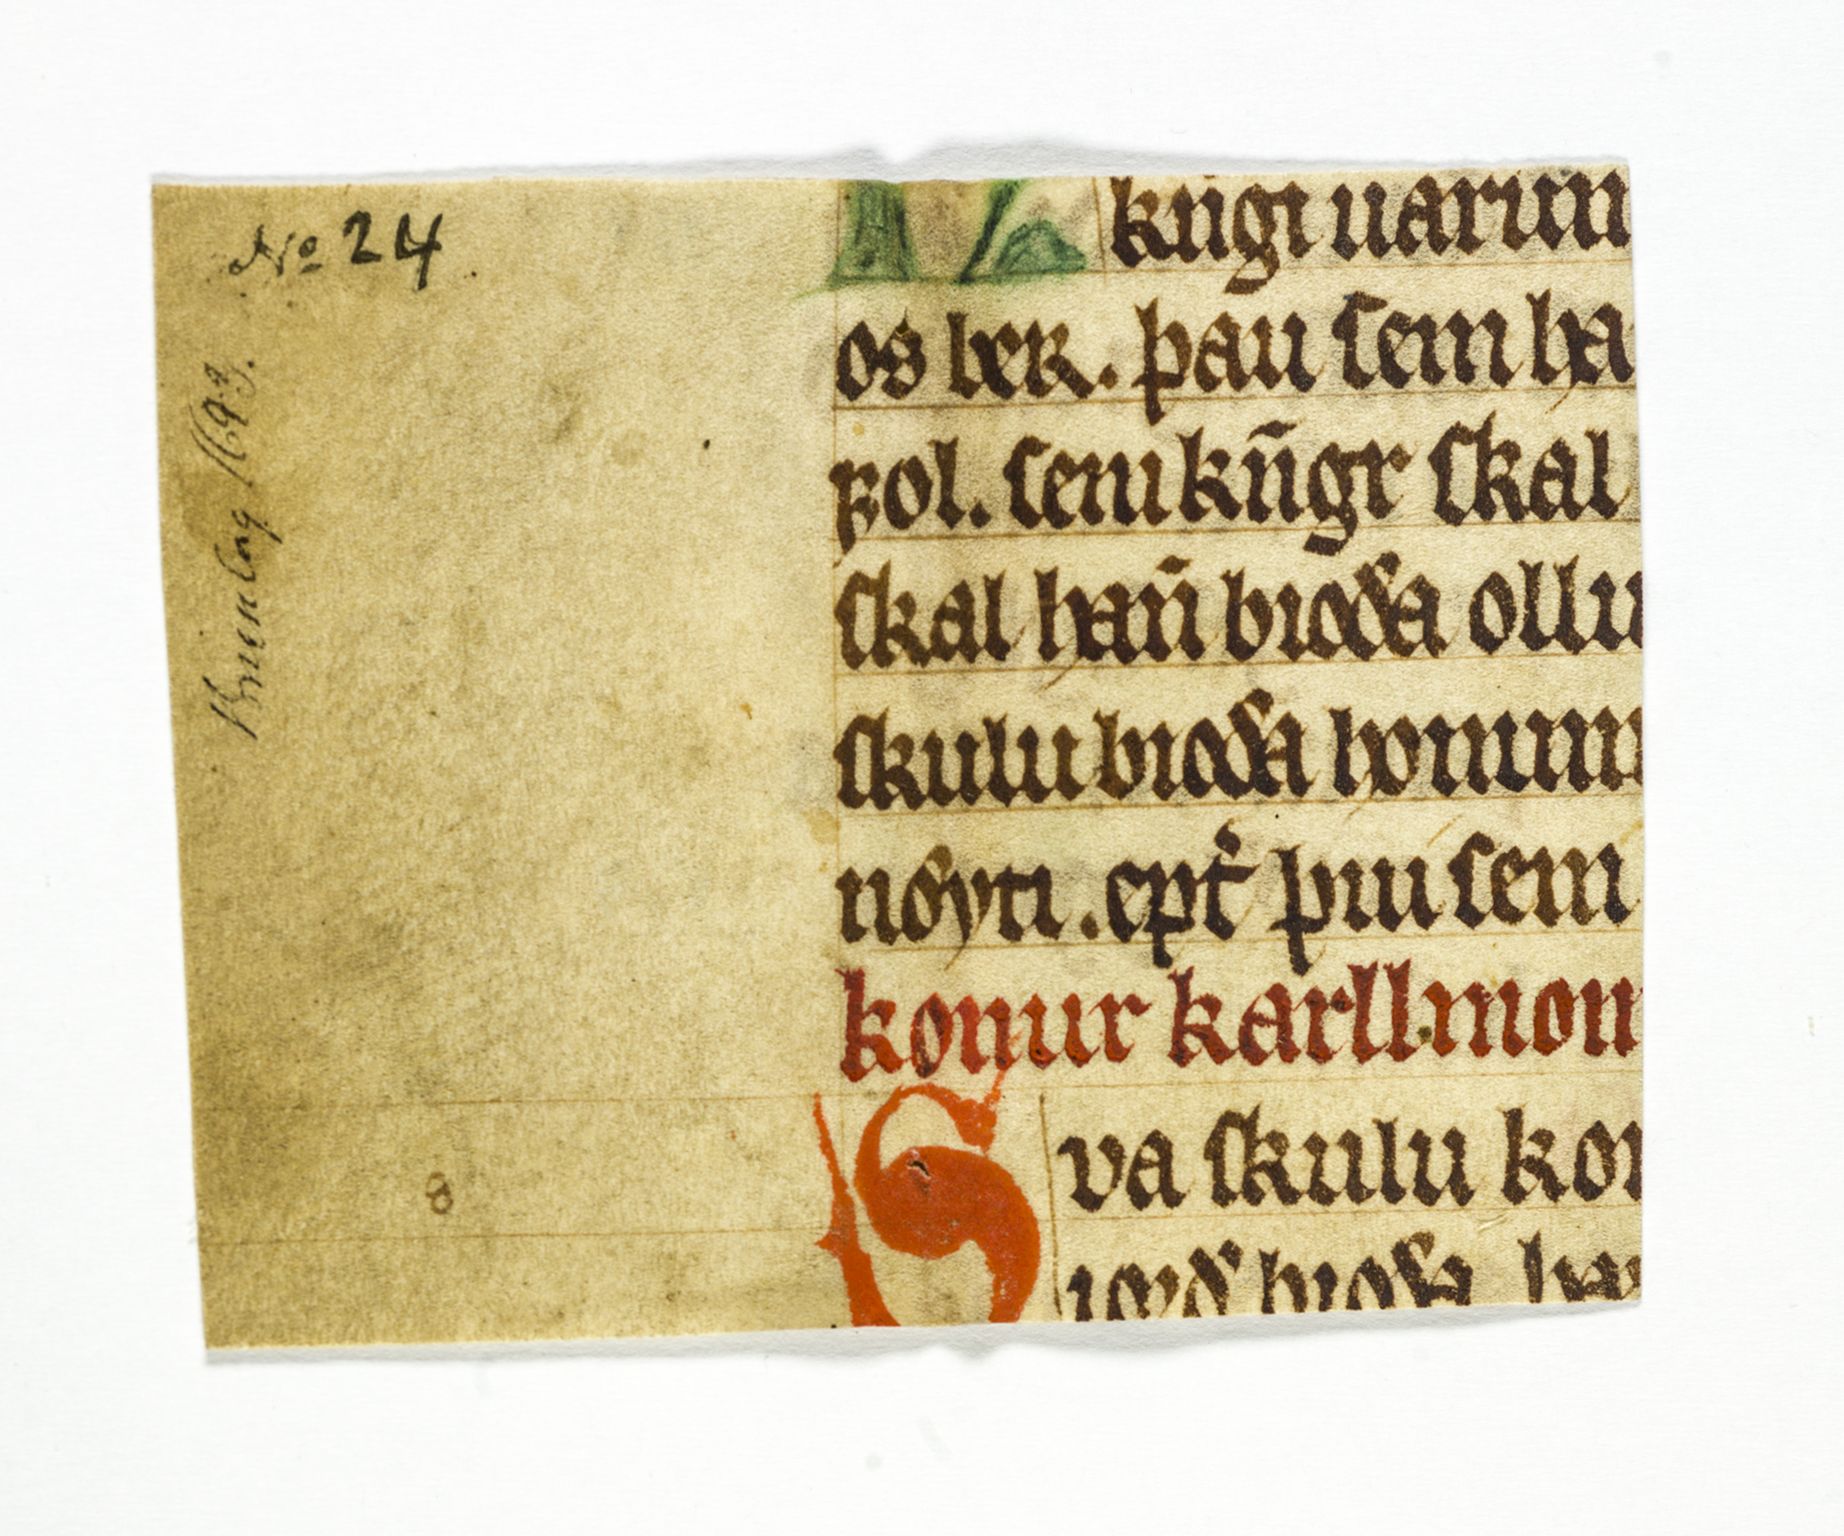 No 24
Brunlag 1693.
kūgi uarum
os ber. þau ſem ha
ꝼol. ſem kūgr ſkal
ſkal han̄ bioða ollu
ſkulu bioða honum
nöyti. epť þui ſem
konur karllmon
Sva ſkulu kon
iorð bioða. ha
8